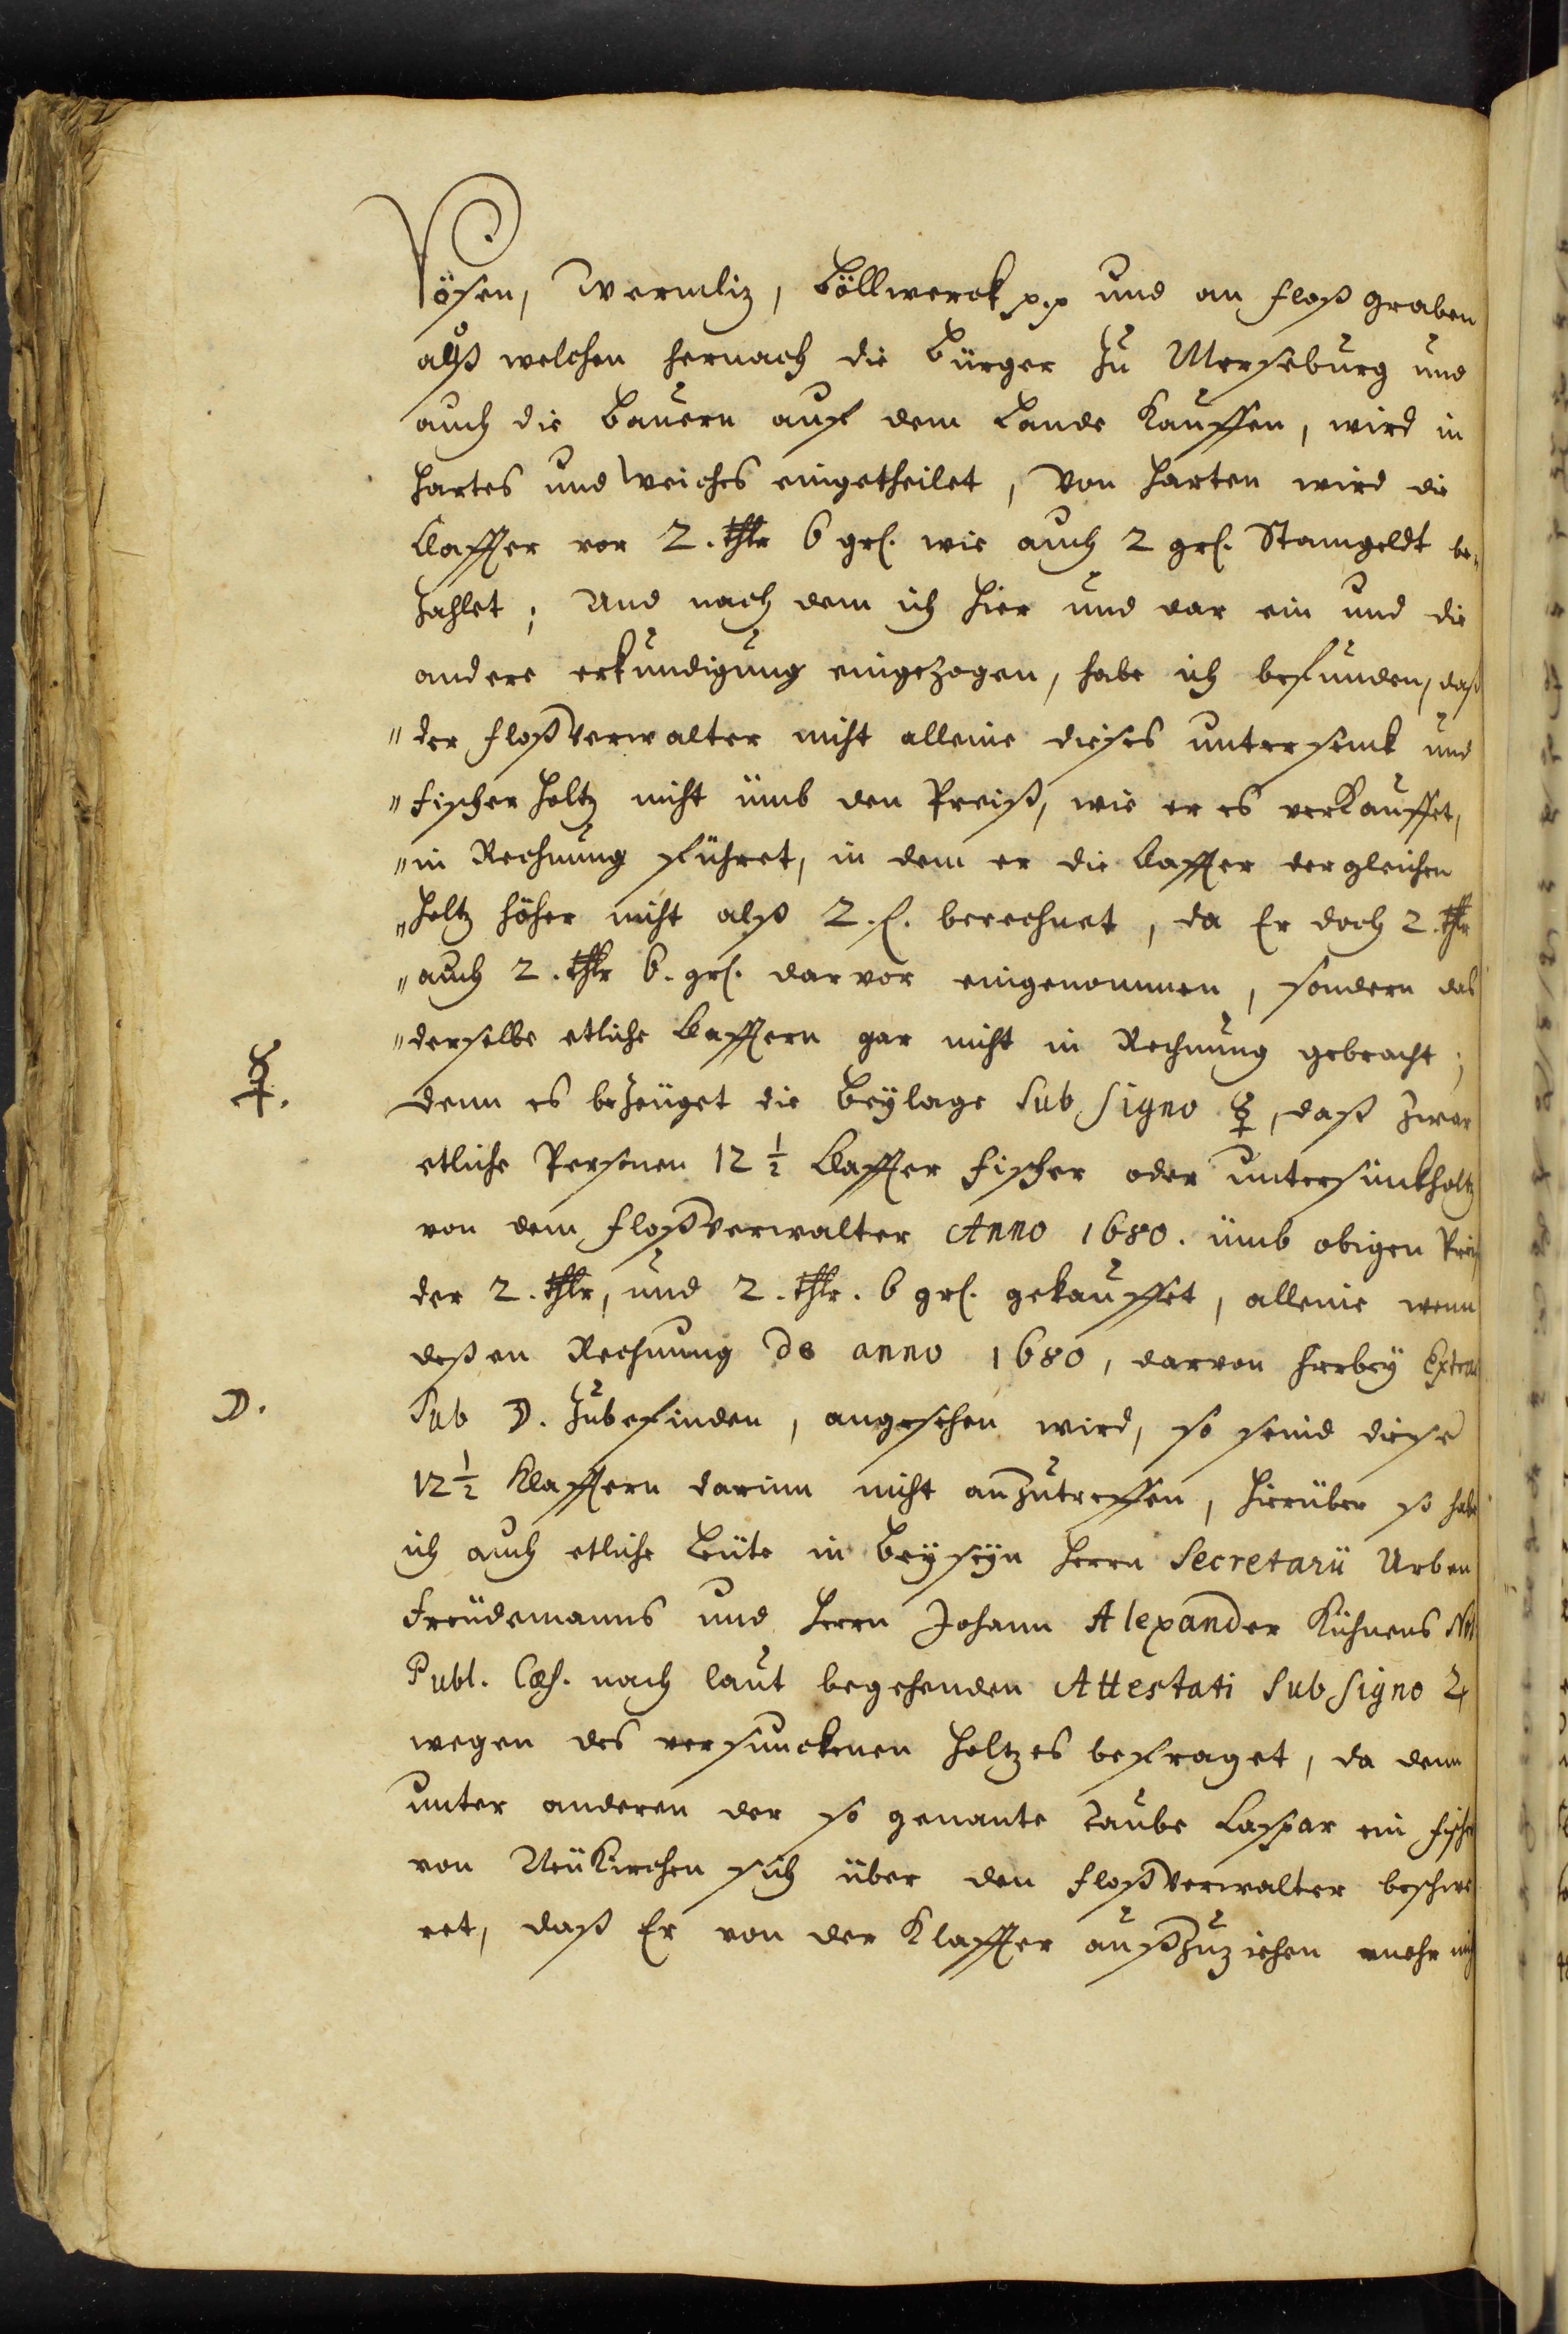 Vösen, Wermliz, Böllwerck p.p und an floß graben
alß welchen hernach die Bürger zu Merseburg und
auch die Bauern auf dem Lande Kauffen, wird in
hartes und weiches eingetheilet, Von harten wird die
Claffter vor 2. thlr 6 grs. wie auch 2 grs. Stamgeldt be-
zahlet; Und nach dem ich hier und dar ein und die
andere erkundigung eingezogen, habe ich befunden, daß
" der floßverwalter nicht alleine dieses untersinck und
" fischer holtz nicht ümb den Preiß, wie er es verkauffet,
" in Rechnung führet, in dem er die Claffter dergleichen
" holtz höher nicht alß 2. f. berechnet, da Er doch 2. thlr
" auch 2. thlr 6. grs. darvor eingenommen, sondern das
" derselbe etliche Clafftern gar nicht in Rechnung gebracht;
☿.
denn es bezeüget die Beÿlage sub signo ☿, daß zwar
etliche Personen 12 ½ Claffter fischer oder untersinckholtz
von dem floßverwalter Anno 1680. ümb obigen Preiß
der 2. thlr, und 2. thlr. 6 grs. gekauffet, alleine wenn
deßen Rechnung de anno 1680, darvon hierbeÿ Extra
☽.
Sub ☽. zubefinden, angesehen wird, so seind diese
12 ½ Klafftern darinn nicht anzutreffen, hierüber so habe
ich auch etliche Leüte in Beÿseÿn Herrn Secretarii Urben
Freüdemanns und Herrn Johann Alexander Kühnens Not.
Publ. Cæs. nach laut begehenden Attestati sub signo ♃
wegen des versunckenen holtzes befraget, da denn
unter anderen der so genante taube Caspar ein fischer
von Neükirchen sich über den floßverwalter beschwe
ret, daß Er von der Klaffter außzuziehen mehr nich